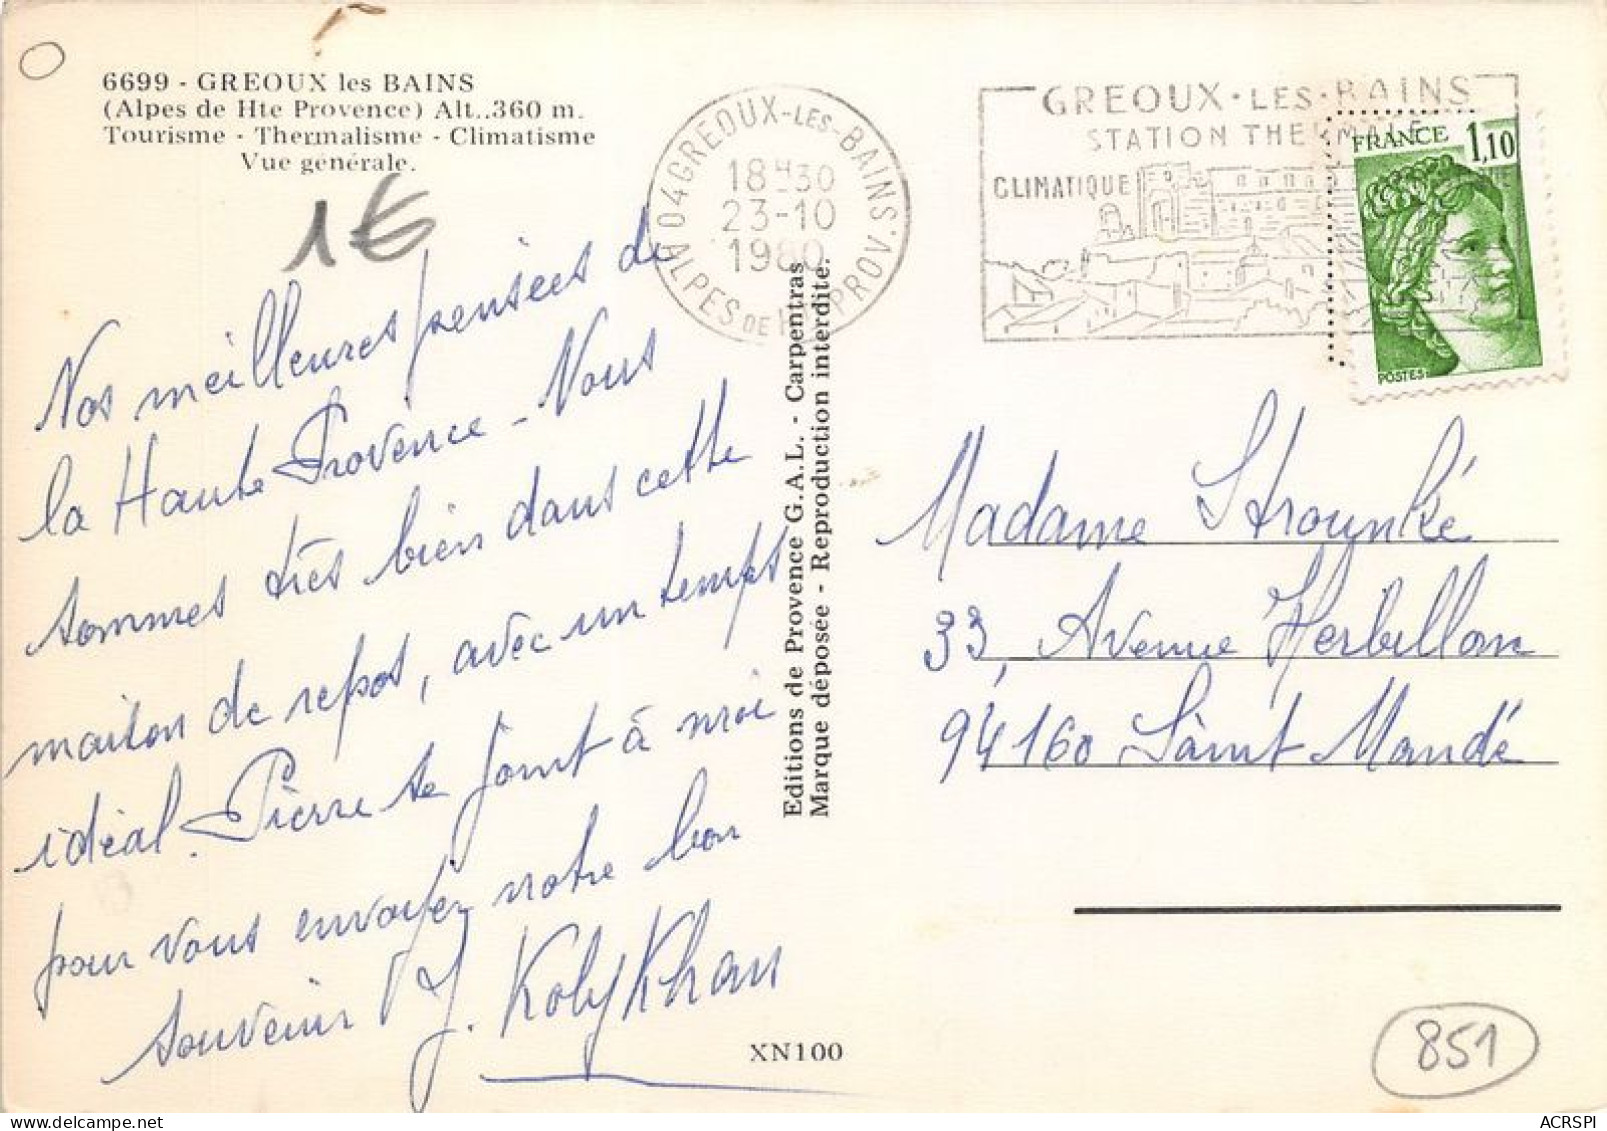 6699 - GREOUX les BAINS
(Alpes de Hte Provence) Alt..360 m.
Tourisme - Thermalisme - Climatisme
Vue générale.
1€
04 GREOUX-LES-BAINS
18H30
23-10
1980
ALPES DE H. PROV.
GREOUX·LES·BAINS
STATION THERMALE
CLIMATIQUE
FRANCE 1,10
POSTES
Nos meilleures pensées de
la Haute Provence - Nous
sommes très bien dans cette
maison de repos, avec un temps
idéal. Pierre se joint à moi
pour vous envoyer notre bon
souvenir
J. Kolykhan
Editions de Provence G.A.L. - Carpentras
Marque déposée - Reproduction interdite.
Madame Strounké
33, Avenue Herbillon
94160 Saint Mandé
XN100
851
ACRSPI